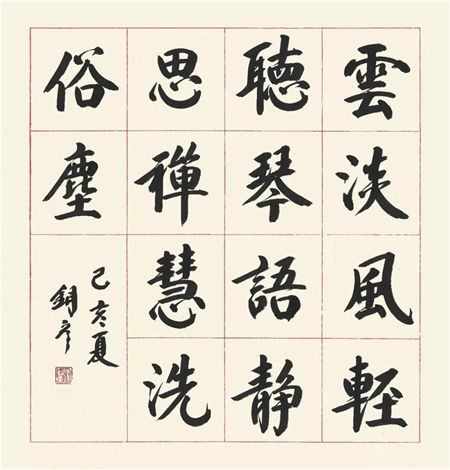 雲淡風輕
聽琴語静
思禪慧洗
俗塵
己亥夏